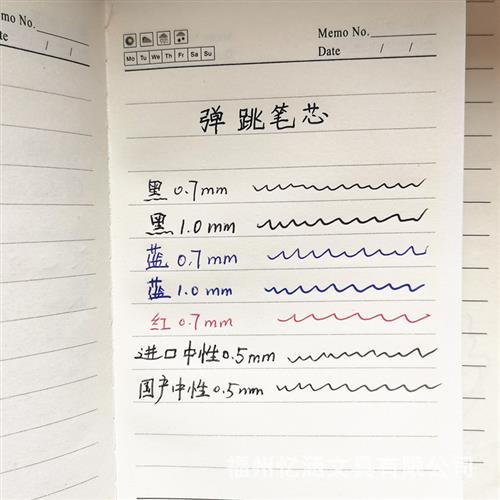 emo No.
te / /
Memo No.
Mo Tu We Th Fr Sa Su
Date / /
弹跳笔芯
黑 0.7mm
黑 1.0mm
蓝 0.7mm
蓝 1.0mm
红 0.7mm
进口中性0.5mm
国产中性0.5mm
福州忆涵文具有限公司